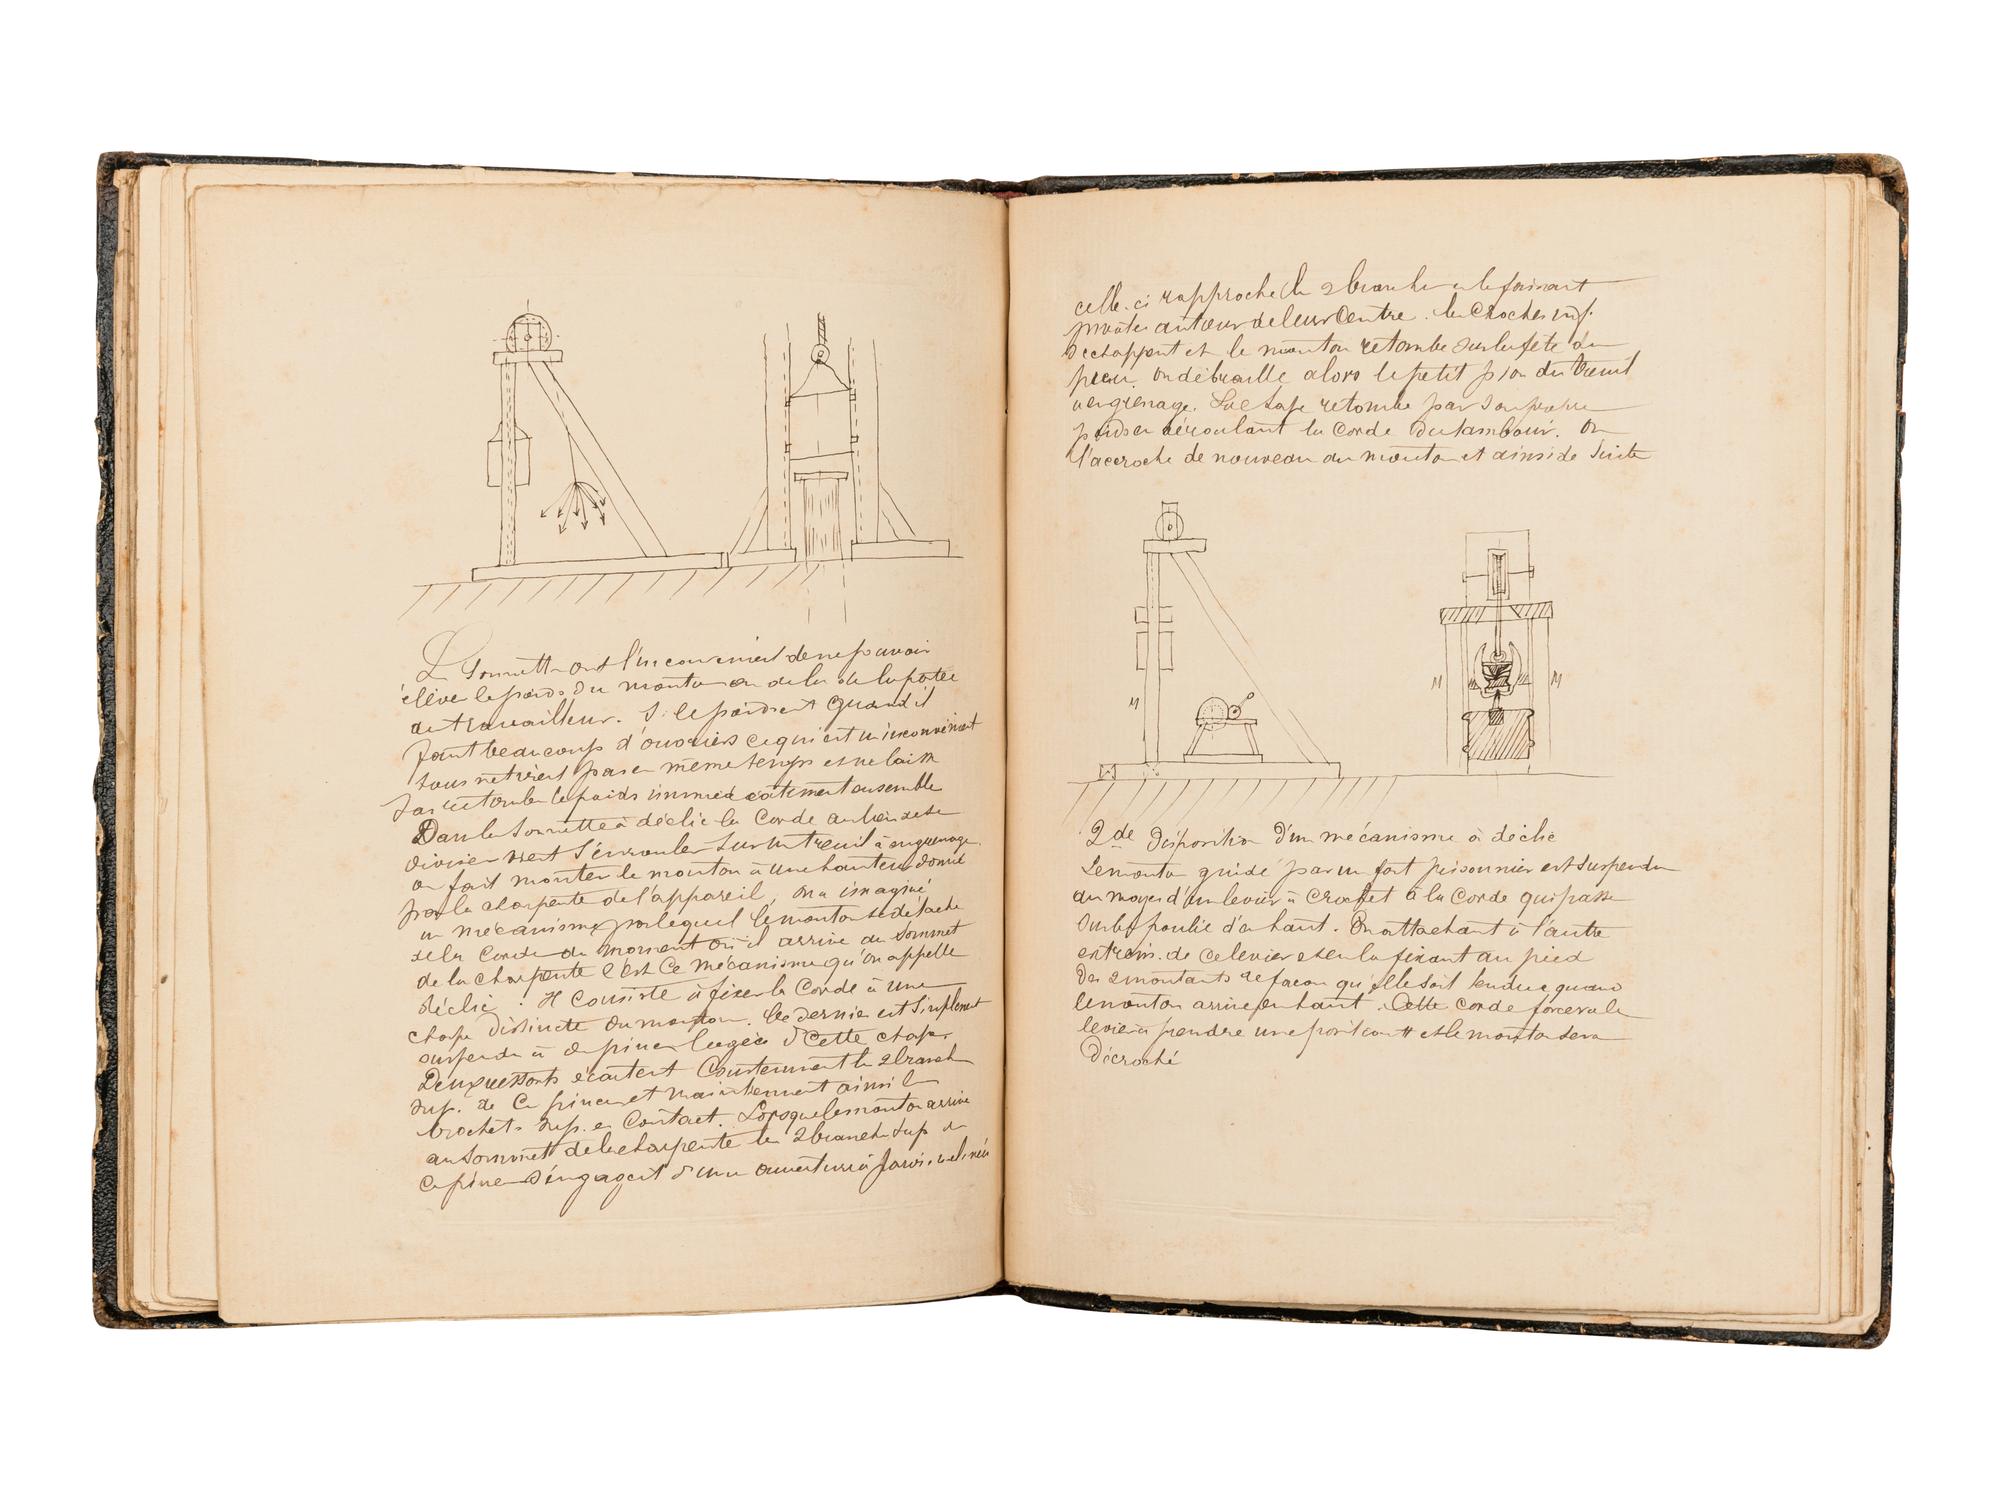 Sonnett ont l'inconvenient de ne pavoir
élevé le poids du mouton au delà de la portée
du travailleur. Si le poids est grand il
faut beaucoup d'ouvriers ce qui est un inconvenient
tous ne tirent pas en même temps et ne laisse
pas retomber le poids immédiatement ensemble
Dans la sonnette à déclic la Corde au lieu de se
diviser vient s'enrouler sur un treuil à engrenage
on fait monter le mouton à une hauteur donné
par la charpente de l'appareil, on a imaginé
un mécanisme par lequel le mouton se détache
de la Corde au moment où il arrive au sommet
de la charpente c'est ce mécanisme qu'on appelle
déclic. Il consiste à fixer la Corde à une
chape distincte du mouton. Ce dernier est simplement
suspendu à une pince logée ds cette chape.
Deux ressorts écartent constamment les 2 branch
sup. de la pince et maintiennent ainsi les
crochets sup. en contact. Lorsque le mouton arrive
au sommet de la charpente les 2 branch sup de
la pince s'engagent ds une ouverture à parois
celle-ci rapproche les 2 branche en le faisant
pivoter autour de leur centre. les Crochets inf.
s'echappent et le mouton retombe sur la tête du
pieu. On débraille alors le petit pion du treuil
a engrenage. La chape retombe par son propre
poids en déroulant la corde du tambour. On
l'accroche de nouveau au mouton et ainsi de suite
M
M
M
2de Disposition d'un mécanisme à déclic
Le mouton guidé par un fort prisonnier est suspendu
au moyen d'un levier à Crochet à la Corde qui passe
sur la poulie d'en haut. En attachant à l'autre
extrem. de ce levier et en la fixant au pied
des 2 montants de facon qu'elle soit tendue quand
le mouton arrive en haut. Cette corde force le
levier à prendre une position et le mouton sera
Décroché